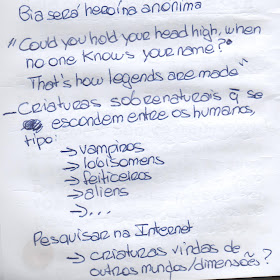 Bia será heroína anônima
"Could you hold your head high, when
no one knows your name?"
That's how legends are made"
- Criaturas sobrenaturais q̃ se
escondem entre os humanos,
tipo:
→ vampiros
→ lobisomens
→ feiticeiros
→ aliens
→ ...
Pesquisar na Internet
→ criaturas vindas de
outros mundos/dimensões?